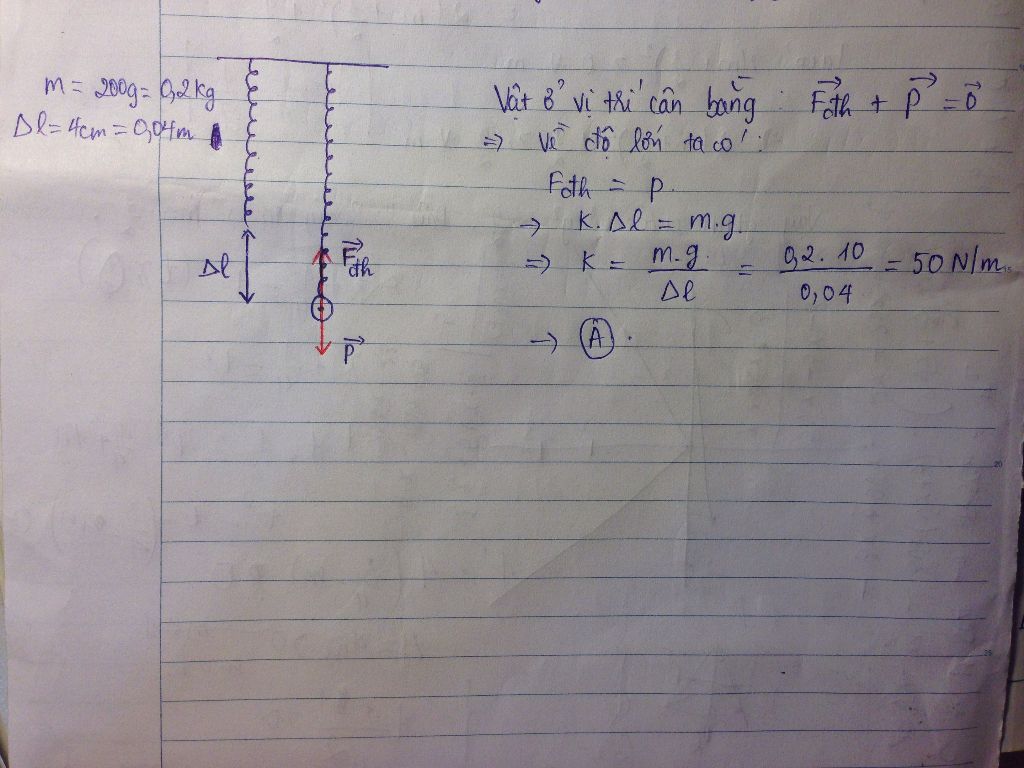 m = 200g = 0,2kg
Δl = 4cm = 0,04m
Δl
F⃗đh
P⃗
Vật ở vị trí cân bằng : F⃗đh + P⃗ = 0⃗
=> về độ lớn ta có :
Fđh = P.
→ K.Δl = m.g.
=> K = m.g. / Δl = 0,2.10 / 0,04 = 50 N/m
→ A .
20
25